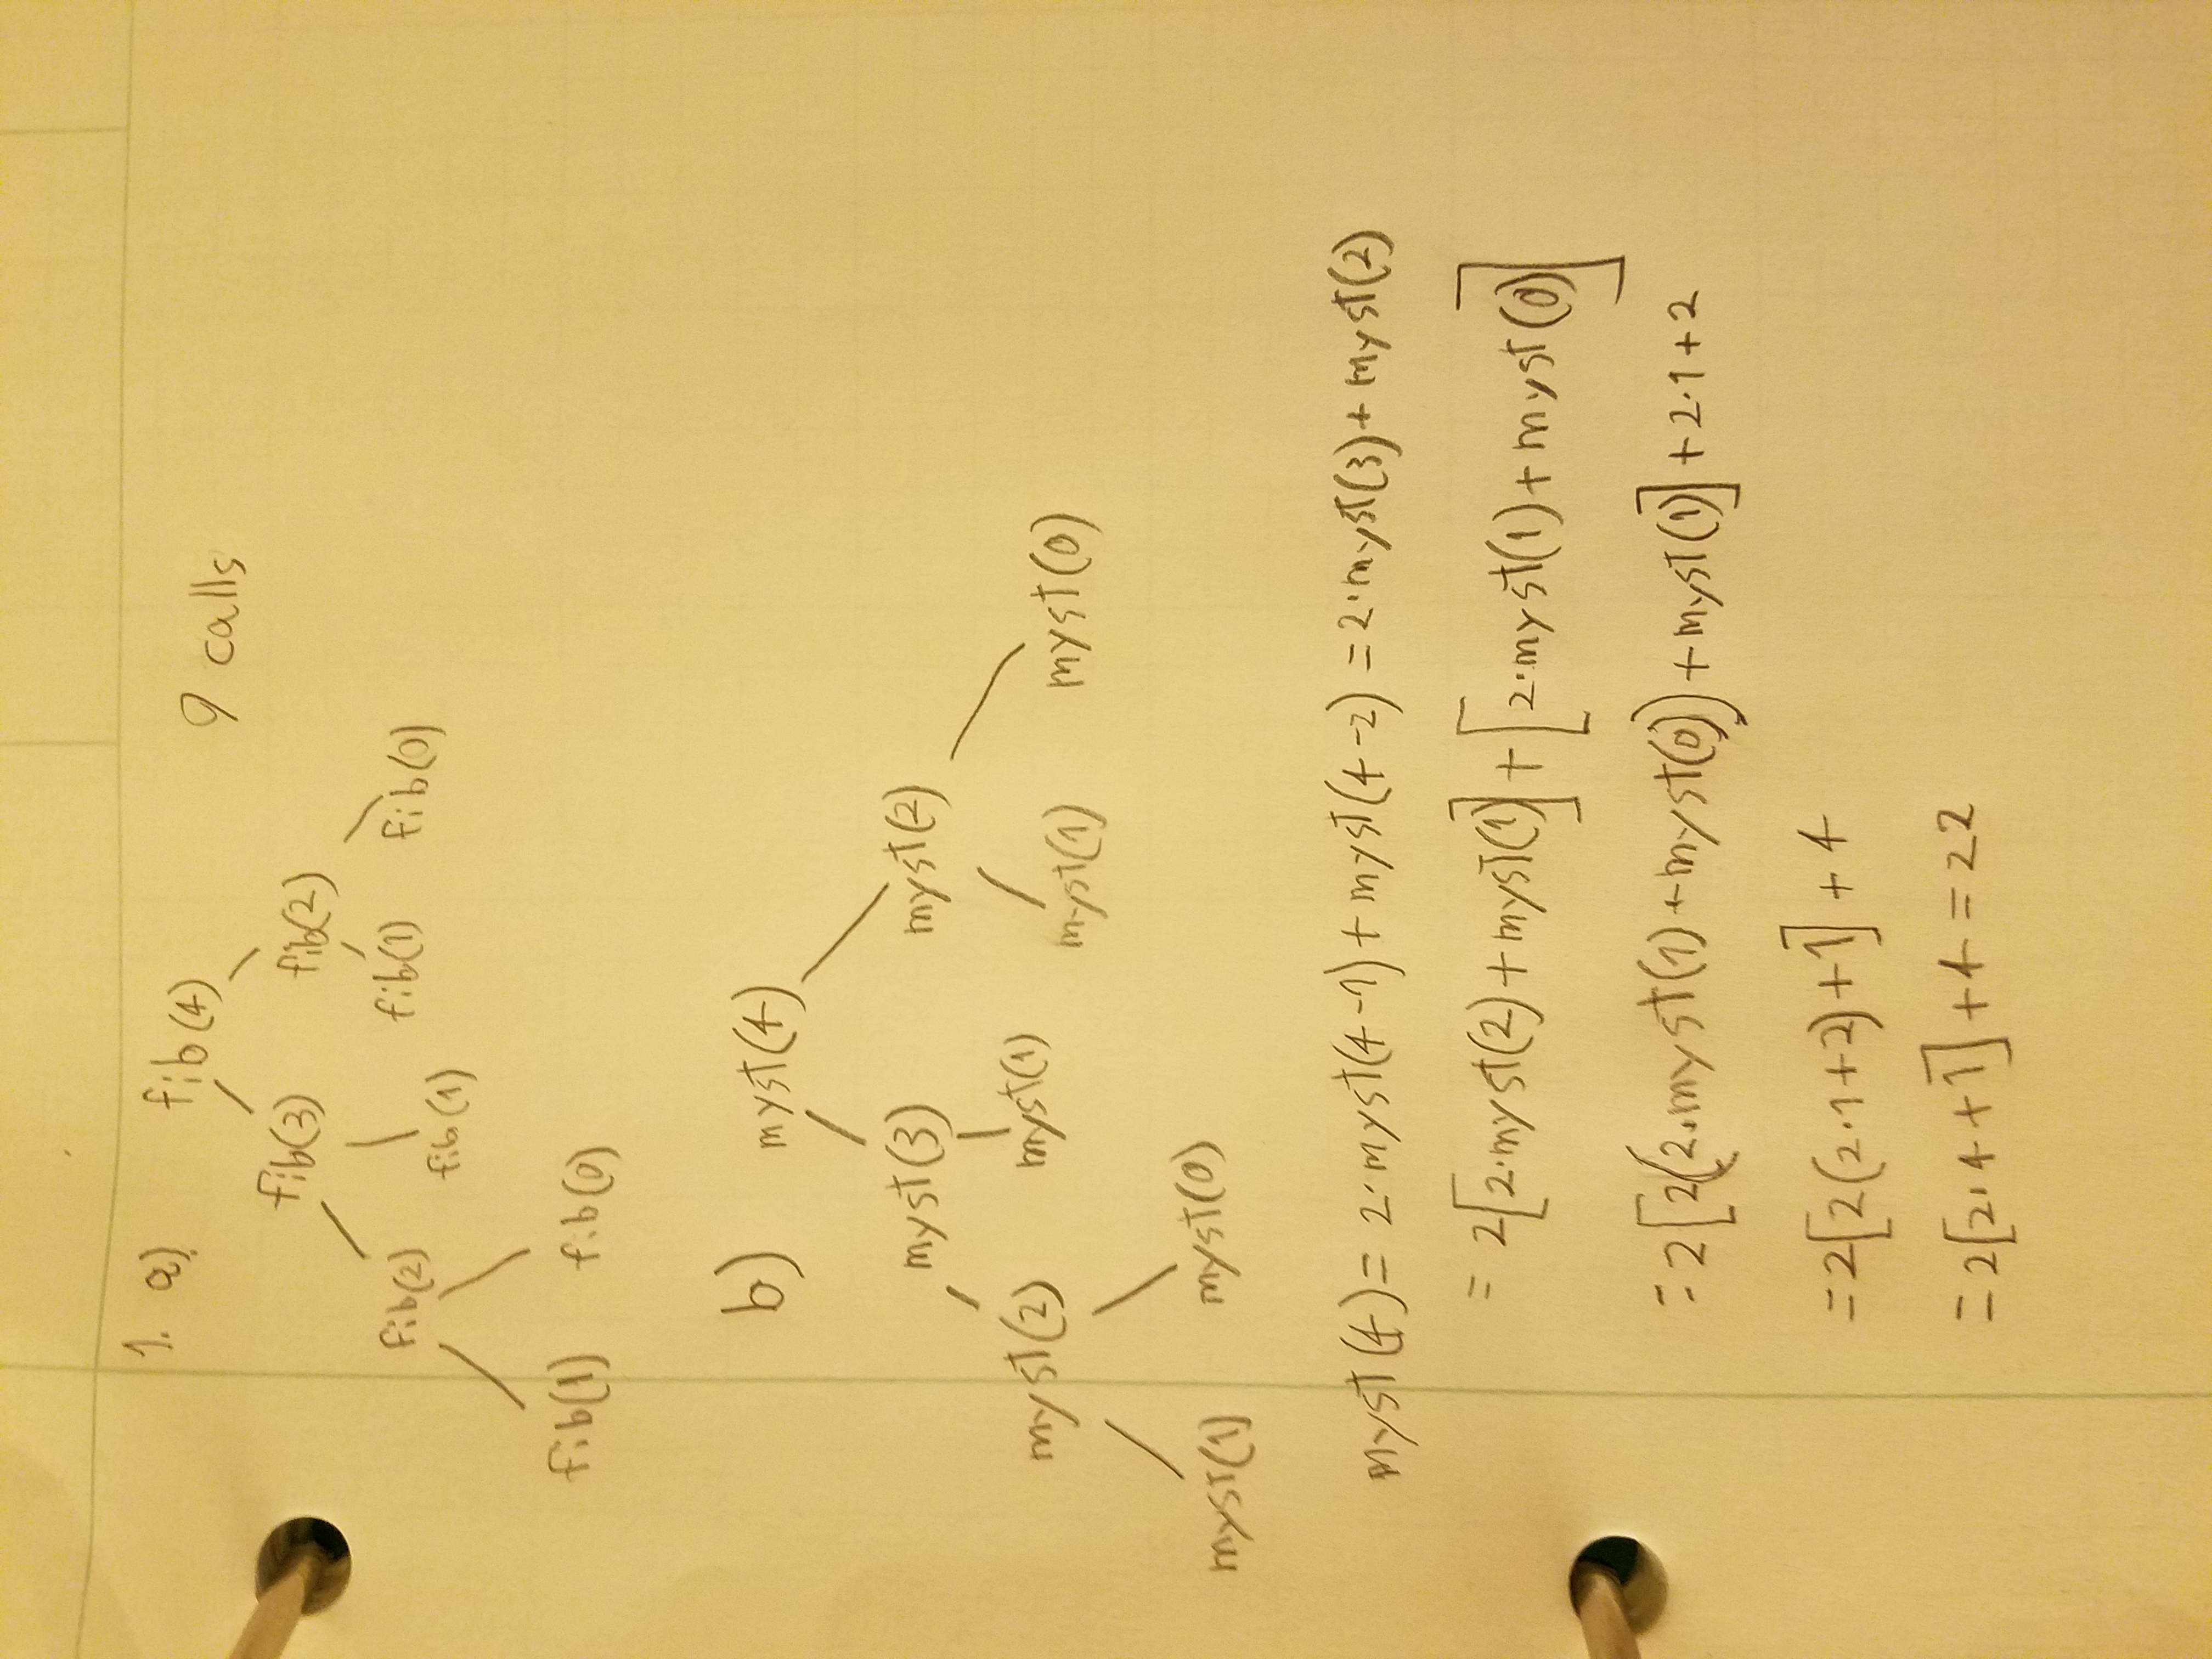 1. a) fib(4) 9 calls
fib(3) fib(2)
fib(2) fib(1) fib(1) fib(0)
fib(1) fib(0)
b) myst(4)
myst(3) myst(2)
myst(2) myst(1) myst(1) myst(0)
myst(1) myst(0)
myst(4) = 2·myst(4-1) + myst(4-2) = 2·myst(3) + myst(2)
= 2[2·myst(2) + myst(1)] + [2·myst(1) + myst(0)]
= 2[2(2·myst(1) + myst(0)) + myst(1)] + 2·1 + 2
= 2[2(2·1+2) + 1] + 4
= 2[2·4 + 1] + 4 = 22